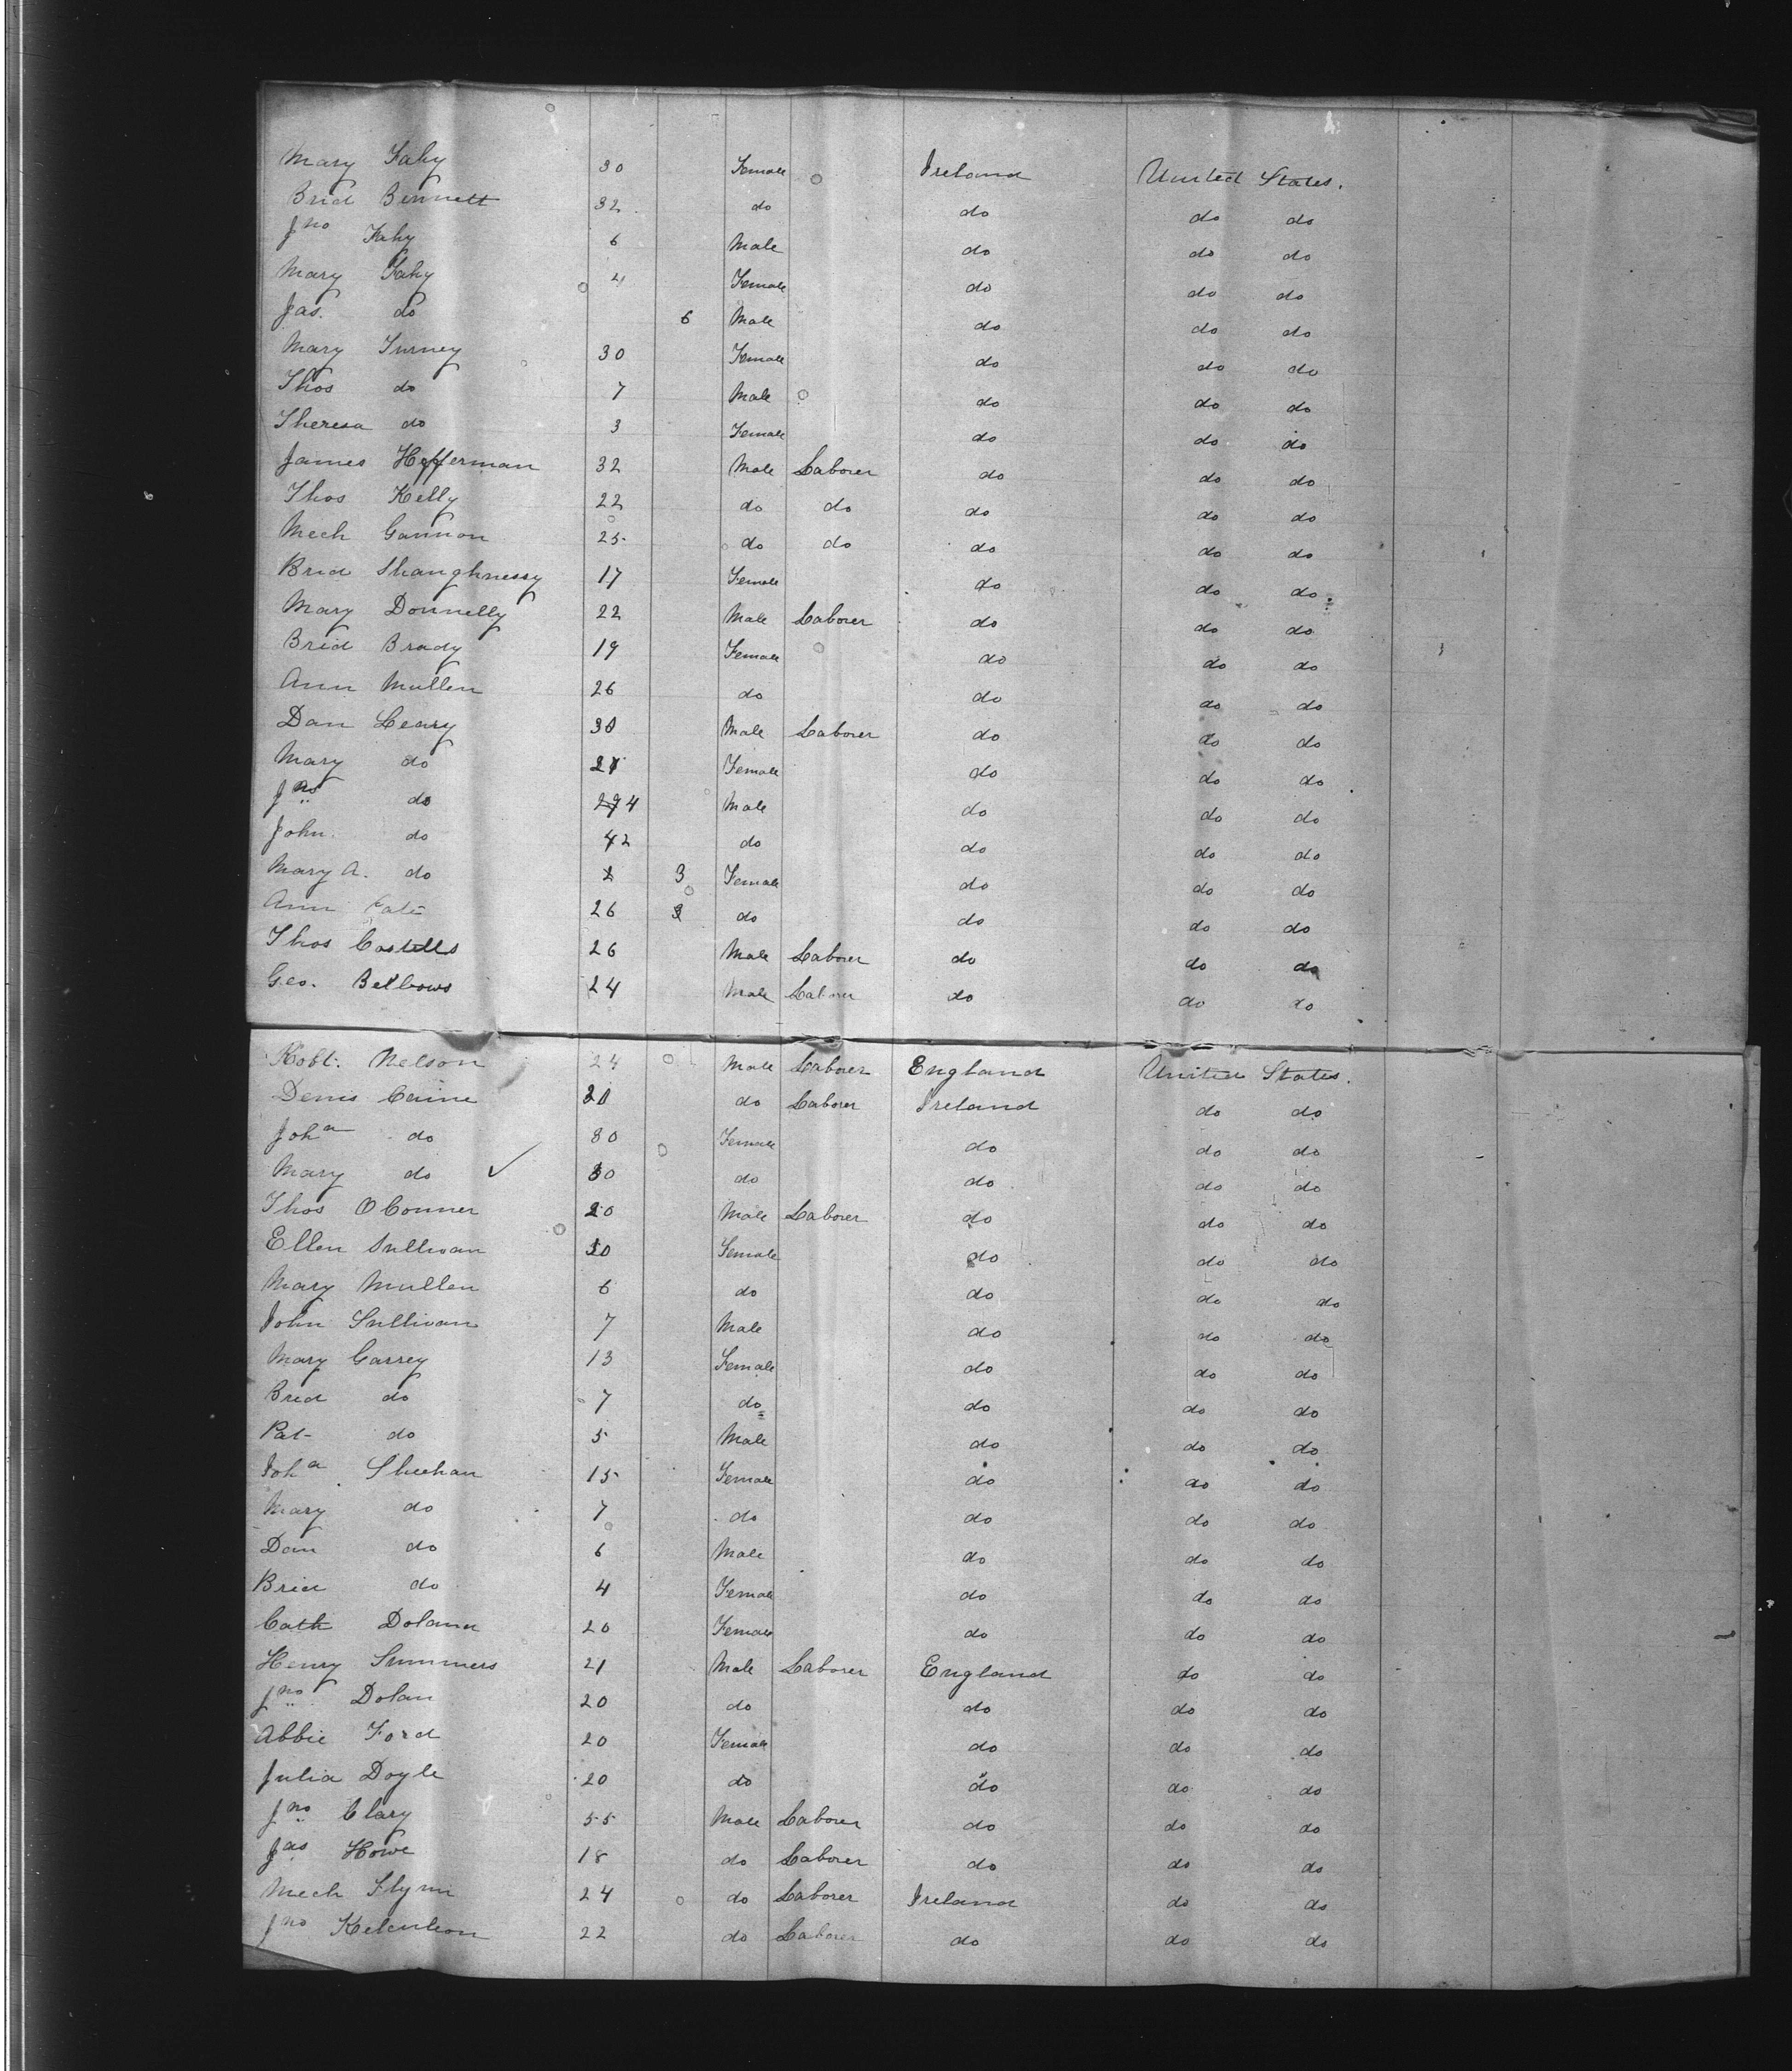 Mary Fahy 30 Female Ireland United States.
Brid Bennett 32 do do do do
Jno Fahy 6 Male do do do
Mary Fahy 4 Female do do do
Jas. do 6 Male do do do
Mary Turney 30 Female do do do
Thos do 7 Male do do do
Theresa do 3 Female do do do
James Hefferman 32 Male Laborer do do do
Thos Kelly 22 do do do do do
Mech Gannon 25 do do do do do
Brid Shaughnessy 17 Female do do do
Mary Donnelly 22 Male Laborer do do do
Brid Brady 19 Female do do do
Ann Mullen 26 do do do do
Dan Leary 30 Male Laborer do do do
Mary do Female do do do
Jno do 4 Male do do do
John do 2 do do do do
Mary A. do 3 Female do do do
Ann 26 do do do do
Thos Costello 26 Male Laborer do do do
Geo. Bellows 24 Male Laborer do do do
Robt. Nelson 24 Male Laborer England United States.
Denis do Laborer Ireland do do
Joha do 30 Female do do do
Mary do do do do do
Thos OConner 20 Male Laborer do do do
Ellen Sullivan Female do do do
Mary Mullen 6 do do do do
John Sullivan 7 Male do do do
Mary Garrey 13 Female do do do
Brid do 7 do do do do
Pat do 5 Male do do do
Joha Sheehan 15 Female do do do
Mary do 7 do do do do
Dan do 6 Male do do do
Brid do 4 Female do do do
Cath Dolann 20 Female do do do
Henry Summers 21 Male Laborer England do do
Jno Dolan 20 do do do do
Abbie Ford 20 Female do do do
Julia Doyle 20 do do do do
Jno Clary 55 Male Laborer do do do
Jas Howe 18 do Laborer do do do
Mech Flynn 24 do Laborer Ireland do do
Jno 22 do Laborer do do do